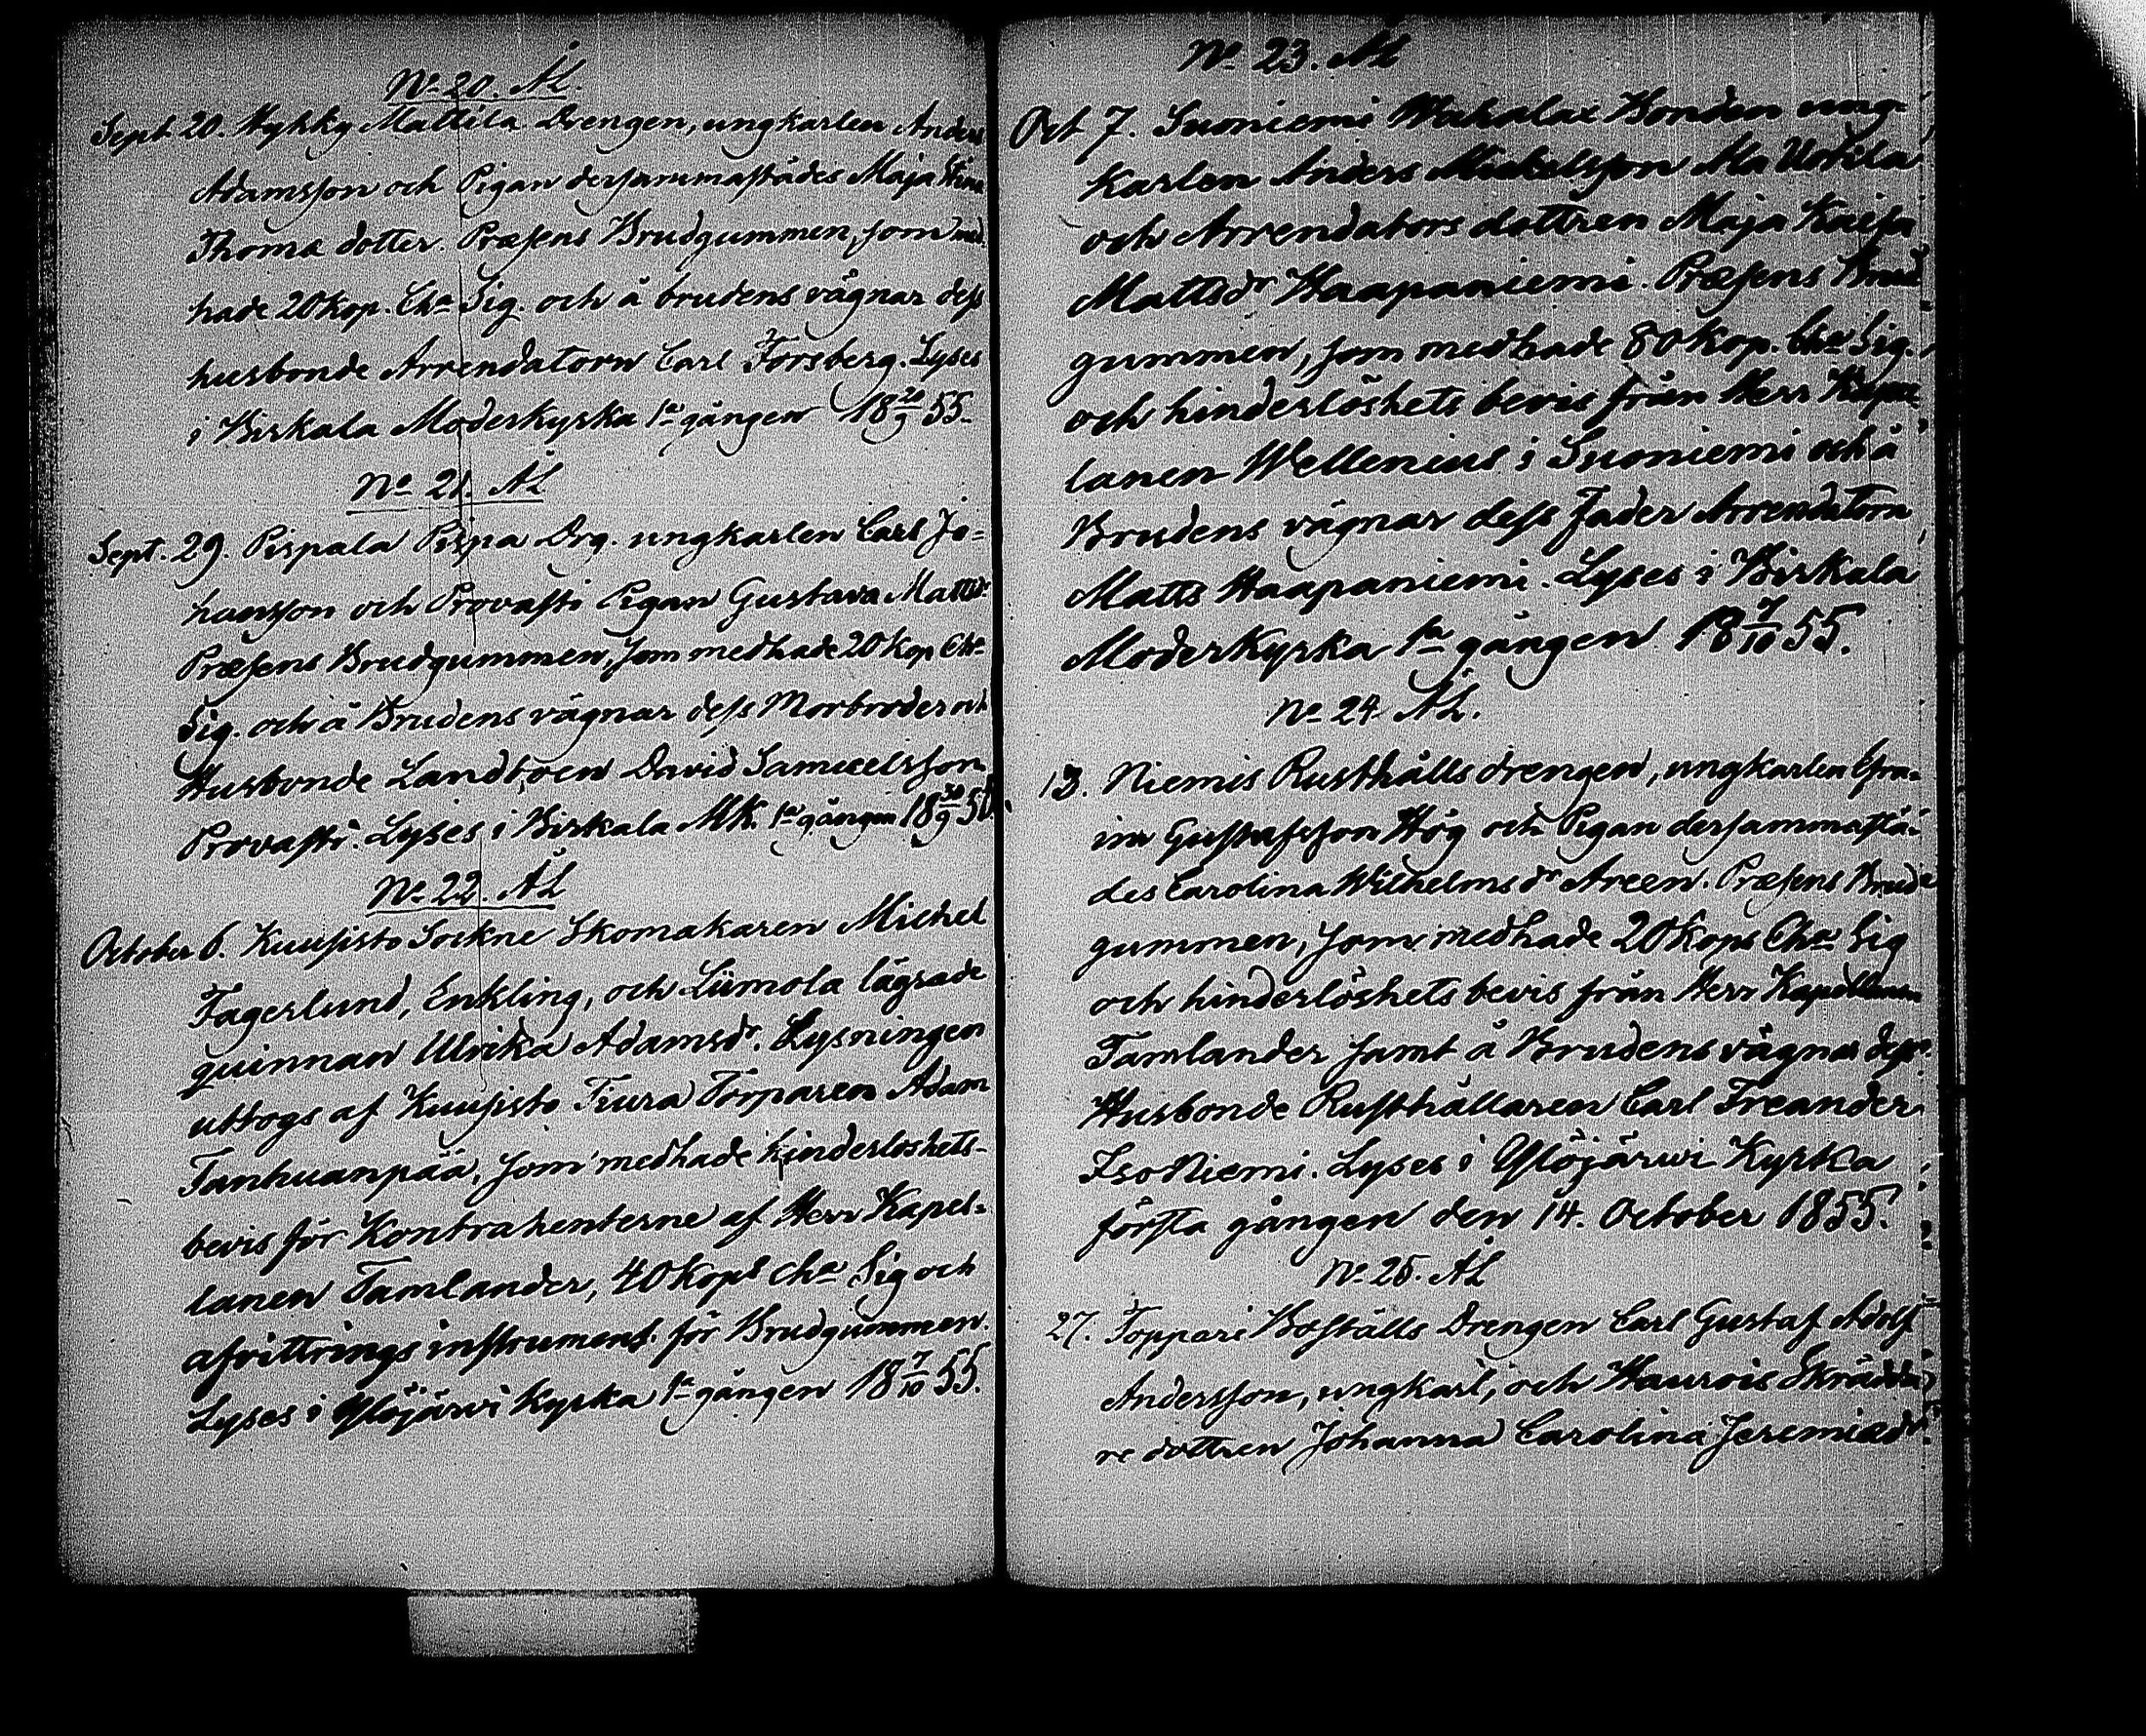 No 20. ÅL.
Sept. 20. Hyhky Mattila Drengen, ungkarlen Anders
Adamsson och Pigan dersammastädes Maja Stina
Thomæ dotter. Præsens Brudgummen, som med-
hade 20 kop. Cha Sig. och å brudens vägnar dess
husbonde Arrendatorn Carl Forsberg. Lyses
i Birkala Moderkyrka 1a gången 18 20/9 55.
No 21. ÅL
Sept. 29. Pispala Pispa Drg. ungkarlen Carl Jo=
hansson och Provasti Pigan Gustava Mattsdr
Præsens Brudgummen, som medhade 20 kop Cha
Sig. och å Brudens vägnar dess Morbroder och
Husbonde Landboen David Samuelsson
Provasti. Lyses i Birkala MK. 1a gången 18 30/9 55.
No 22. ÅL
October 6. Kuusisto Sockne Skomakaren Michel
Fagerlund, Enkling, och Liimola lägrade
quinnan Ulrika Adamsdr. Lysningen
uttogs af Kuusisto Tiura Torparen Adam
Tanhuanpää, som medhade hinderloshets-
bevis för Kontrahenterne af Herr Kapel-
lanen Tamlander, 40 kops cha Sig och
afvittrings instrument för Brudgummen.
Lyses i Ylöjärvi Kyrka 1a gången 18 7/10 55.
No 23. ÅL
Oct 7. Suoniemi Wahalax Bonden ung-
karlen Anders Mickelsson Ala Uotila
och Arrendators dottren Maja Kaisa
Mattsdr Haapaniemi. Præsens Brud-
gummen, som medhade 80 kop. Cha Sig.
och hinderlöshets bevis från Herr Kapel-
lanen Wellenius i Suoniemi och å
Brudens vägnar dess Fader Arrendatorn
Matts Haapaniemi. Lyses i Birkala
Moderkyrka 1a gången 18 7/10 55.
No 24 ÅL.
13. Niemis Rusthålls drengen, ungkarlen Efra-
im Gustafsson Hög och Pigan dersammastä-
des Carolina Wilhelms dr Areen. Præsens Brud-
gummen, som medhade 20 kops Cha Sig
och hinderlöshets bevis från Herr Kapellanen
Tamlander samt å Brudens vägnar dess
Husbonde Rusthållaren Carl Freander
Iso Niemi. Lyses i Ylöjärwi Kyrka
första gången den 14. October 1855.
No 25. ÅL
27. Toppari Boställs Drengen Carl Gustaf Adolf
Andersson, ungkarl, och Haurois Skrädda-
re dottren Johanna Carolina Jeremiædr.